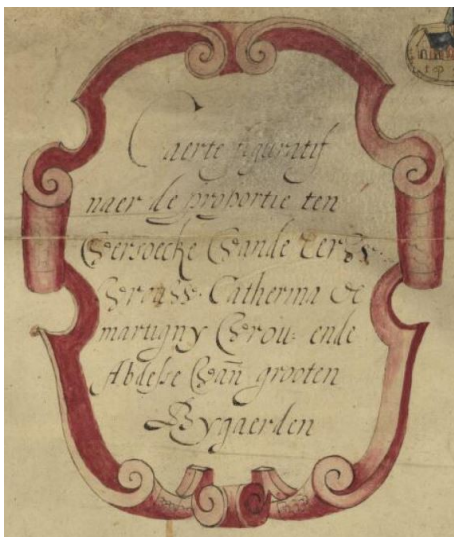 Caerte figuratif
naer de proportie ten
Versoecke Vande Eerw.
Vrouw. Catherina de
martigny Vrou: ende
Abdesse Van grooten
Bygaerden